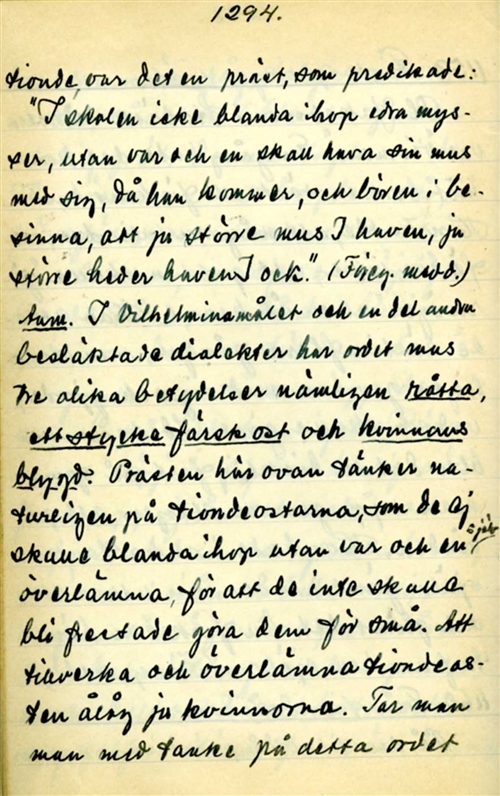 1294.
tionde, var det en präst, som predikade:
"I skolen icke blanda ihop edra mys-
ser, utan var och en skall hava sin mus
med sig, då han kommer, och bören i be-
sinna, att ju större mus I haven, ju
större heder haven I ock." (Föreg. medd.)
Anm. I Vilhelminamålet och en del andra
besläktade dialekter har ordet mus
tre olika betydelser nämligen råtta,
ett stycke färsk ost och kvinnans
blygd. Prästen här ovan tänker na-
turligen på tiondeostarna, som de ej
skulle blanda ihop utan var och en själv
överlämna, för att de inte skulle
bli frestade göra dem för små. Att
tillverka och överlämna tiondeos-
ten ålåg ju kvinnorna. Tar man
man med tanke på detta ordet